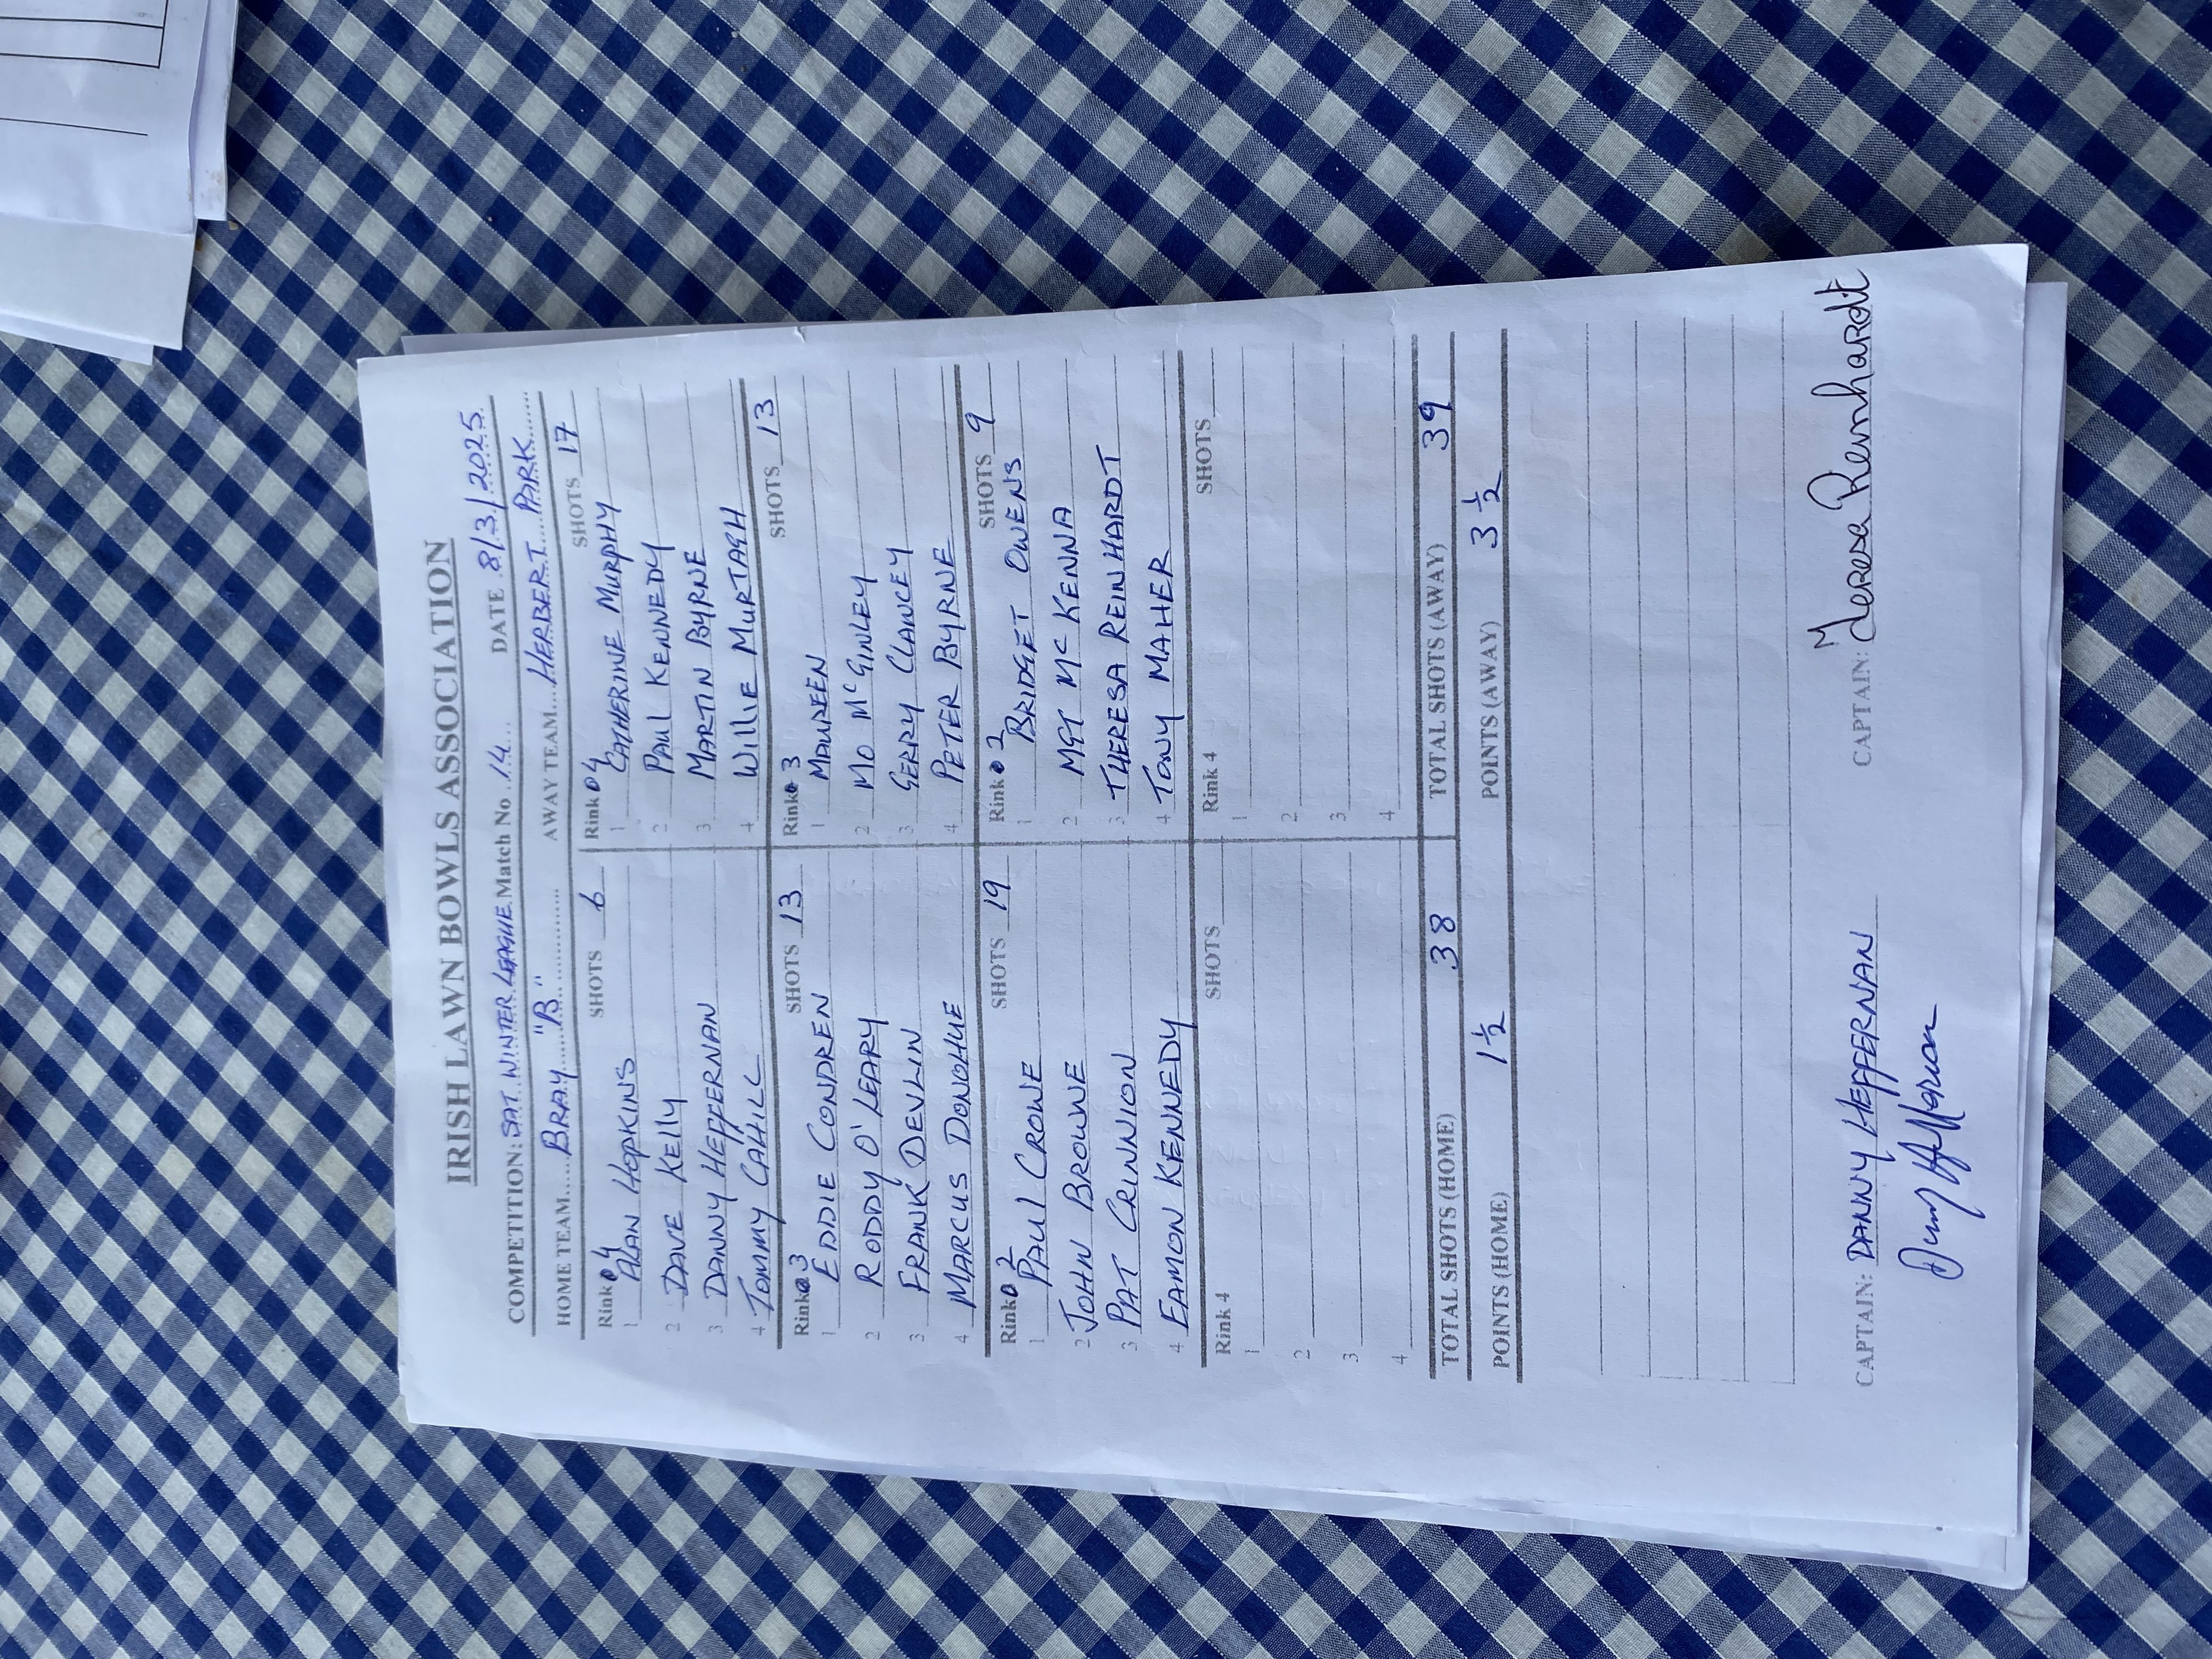 IRISH LAWN BOWLS ASSOCIATION
COMPETITION: SAT. WINTER LEAGUE Match No. 14 DATE 8/3/2025
HOME TEAM BRAY "B" AWAY TEAM HERBERT PARK
SHOTS 6 SHOTS 17
Rink 4 Rink 4
1 ALAN HOPKINS 1 CATHERINE MURPHY
2 DAVE KELLY 2 PAUL KENNEDY
3 DANNY HEFFERNAN 3 MARTIN BYRNE
4 TOMMY CAHILL 4 WILLIE MURTAGH
Rink 3 SHOTS 13 Rink 3 SHOTS 13
1 EDDIE CONDREN 1 MAUREEN
2 RODDY O'LEARY 2 MO McGINLEY
3 FRANK DEVLIN 3 GERRY CLANCEY
4 MARCUS DONOHUE 4 PETER BYRNE
Rink 2 SHOTS 19 Rink 2 SHOTS 9
1 PAUL CROWE 1 BRIDGET OWENS
2 JOHN BROWNE 2 MGT McKENNA
3 PAT CRINNION 3 THERESA REINHARDT
4 EAMON KENNEDY 4 TONY MAHER
Rink 4 SHOTS Rink 4 SHOTS
1 1
2 2
3 3
4 4
TOTAL SHOTS (HOME) 38 TOTAL SHOTS (AWAY) 39
POINTS (HOME) 1 1/2 POINTS (AWAY) 3 1/2
CAPTAIN: DANNY HEFFERNAN CAPTAIN: Teresa Reinhardt